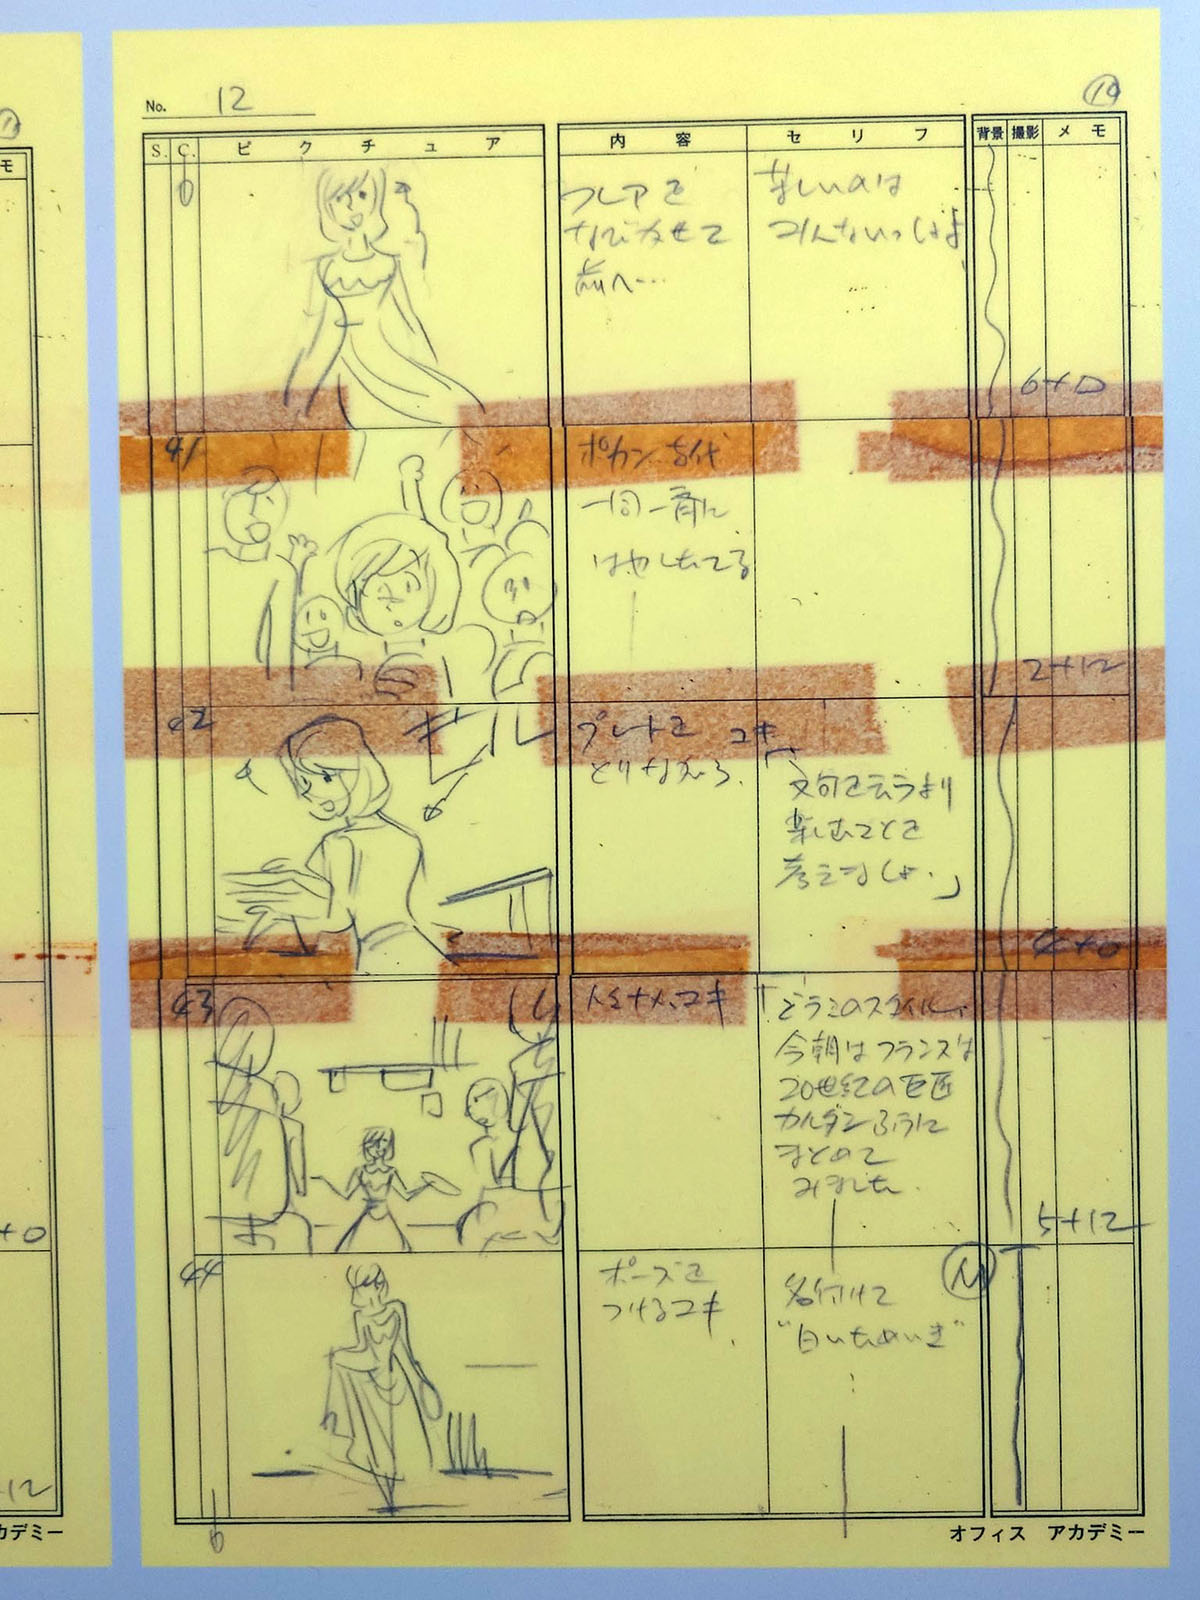 No. 12
S. C. ピクチュア 内容 セリフ 背景 撮影 メモ
フレアを
なびかせて
前へ…
苦しいのは
みんないっしょよ
…
6+0
41
ポカン 古代
一同一斉に
はやしたてる
2+12
42
プレートを
とりながら、
ユキ
「文句を云うより
楽しむことを
考えましょ.」
4+0
43
ユキ
「どうこのスタイル、
今朝はフランスは
20世紀の巨匠
カルダンふうに
まとめて
みました.
5+12
44
ポーズを
つけるユキ
名付けて
"白いためいき"
オフィス アカデミー
モ
+0
+12
カデミー